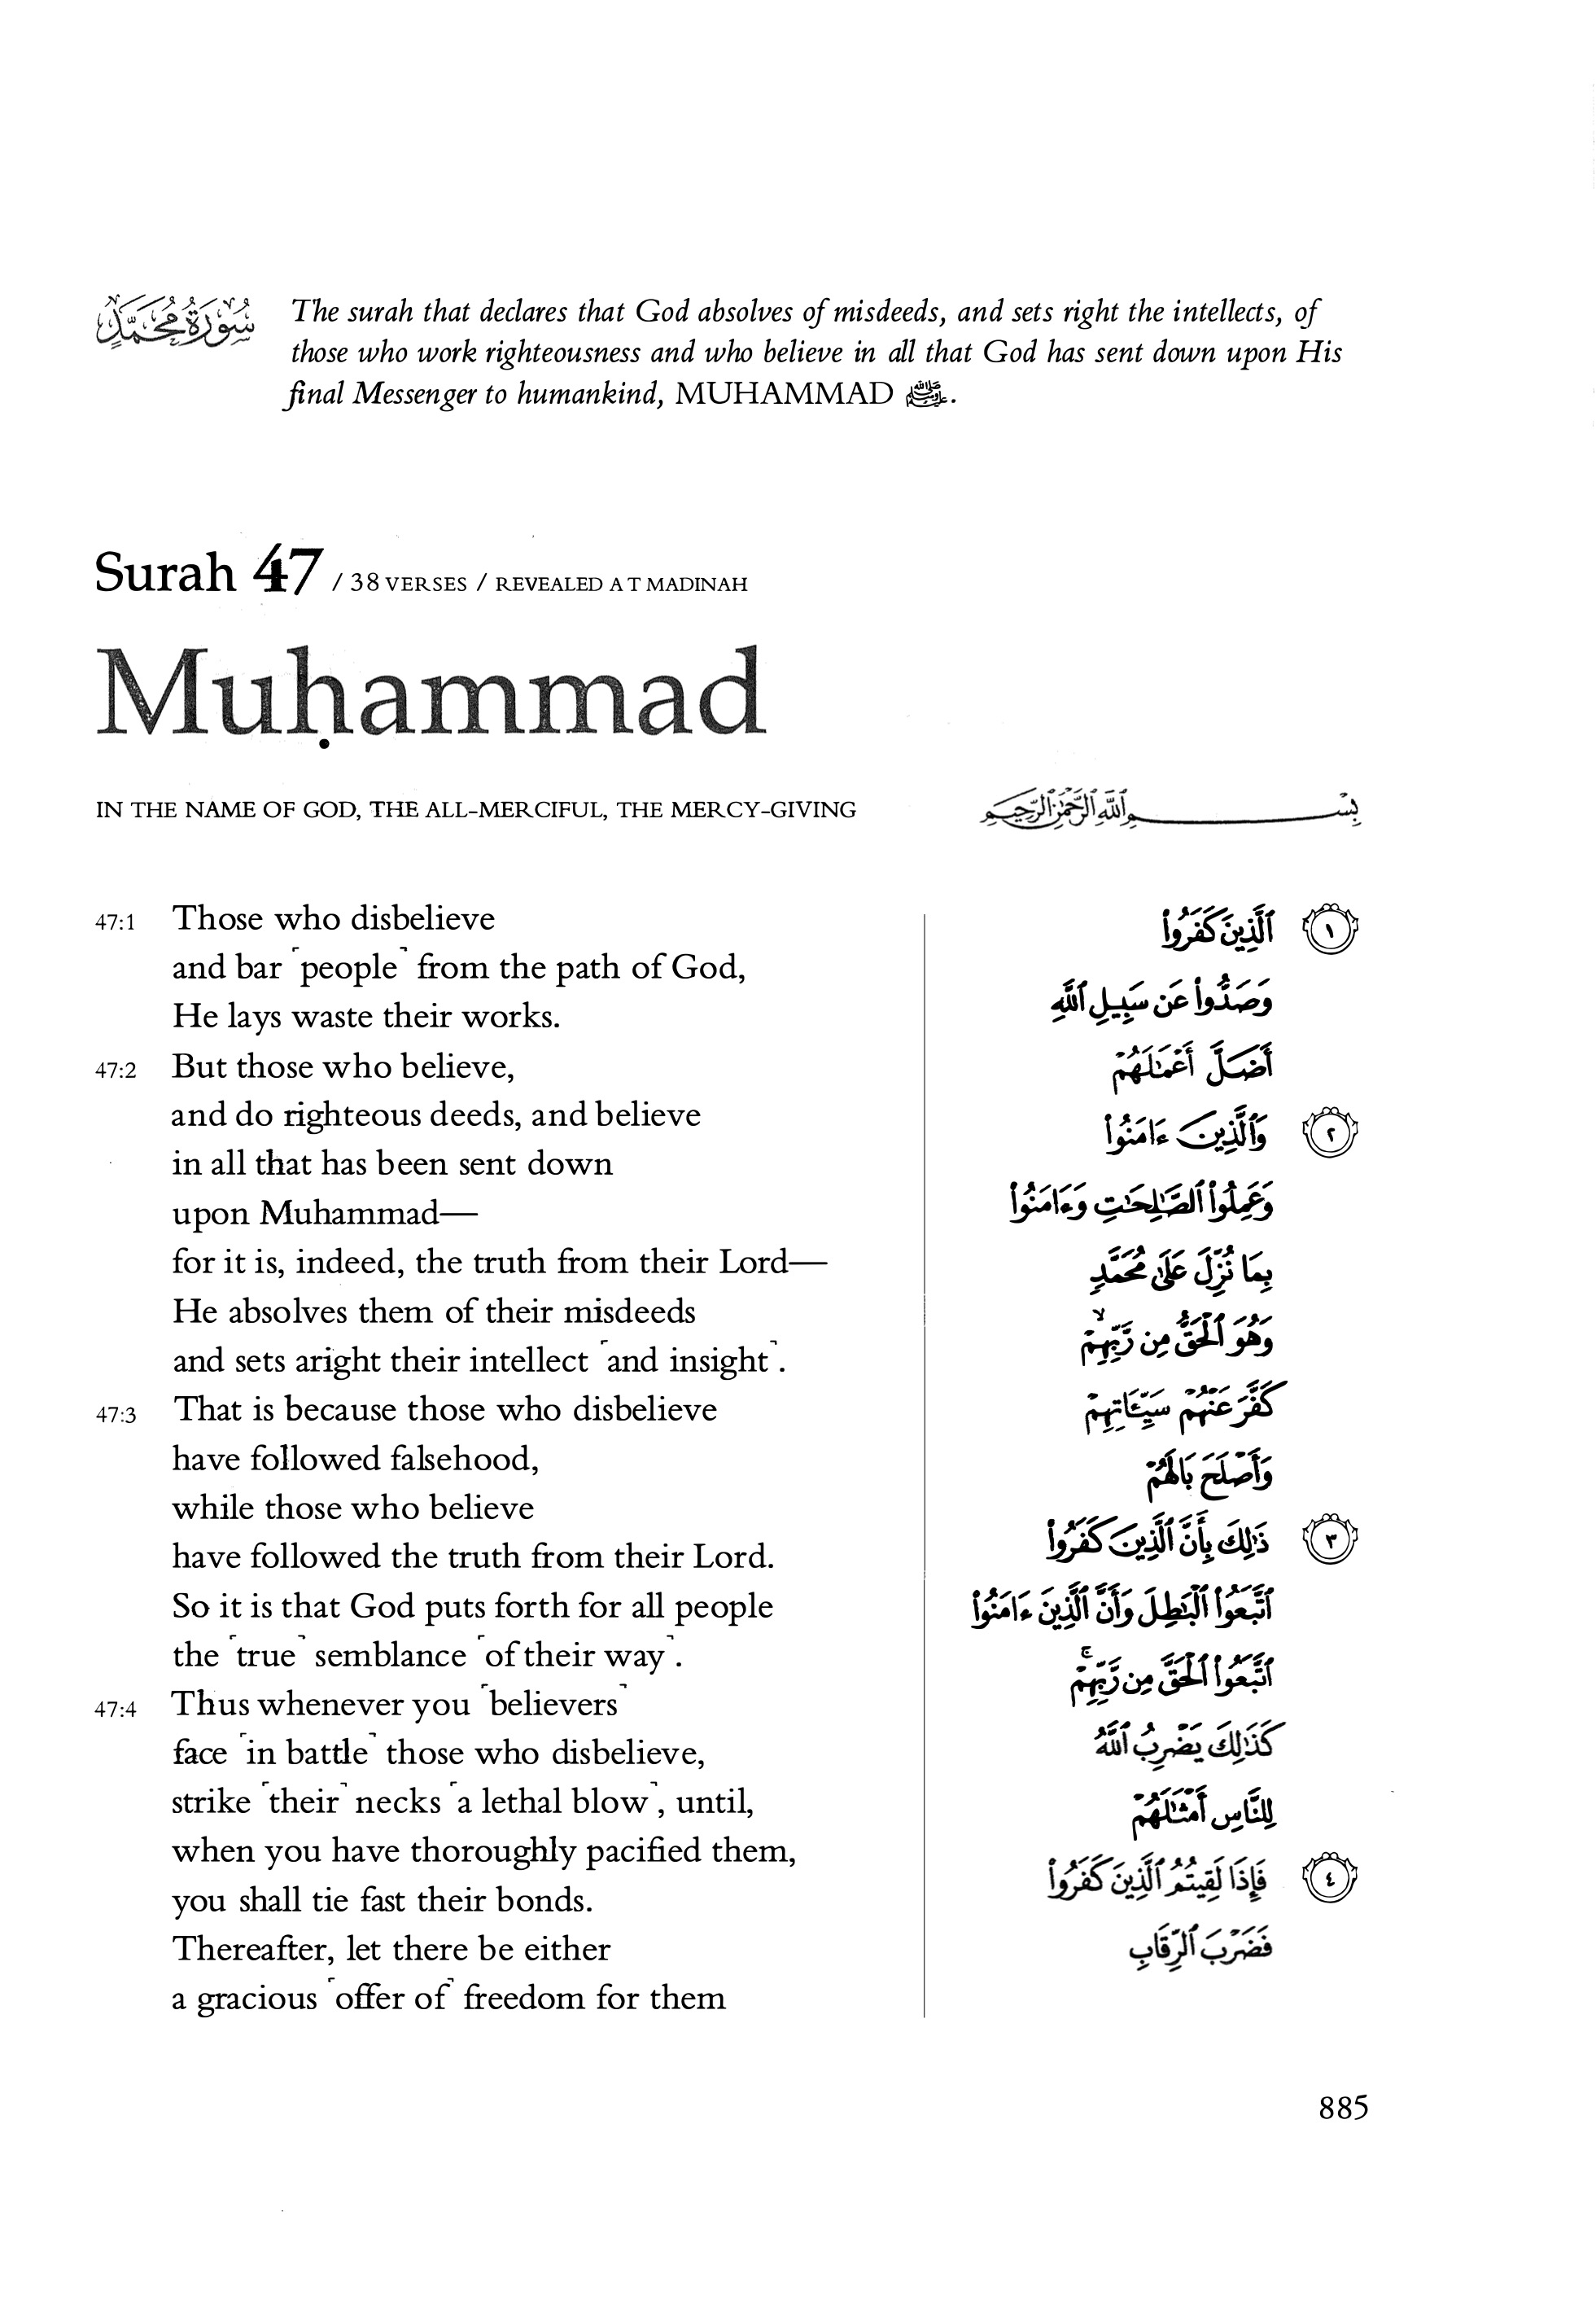 سُورَةُ مُحَمَّدٍ
The surah that declares that God absolves of misdeeds, and sets right the intellects, of
those who work righteousness and who believe in all that God has sent down upon His
final Messenger to humankind, MUHAMMAD ﷺ.
Surah 47 / 38 VERSES / REVEALED AT MADINAH
Muḥammad
IN THE NAME OF GOD, THE ALL-MERCIFUL, THE MERCY-GIVING
بِسْمِ ٱللَّهِ ٱلرَّحْمَٰنِ ٱلرَّحِيمِ
47:1 Those who disbelieve
and bar ⸢people⸣ from the path of God,
He lays waste their works.
47:2 But those who believe,
and do righteous deeds, and believe
in all that has been sent down
upon Muhammad—
for it is, indeed, the truth from their Lord—
He absolves them of their misdeeds
and sets aright their intellect ⸢and insight⸣.
47:3 That is because those who disbelieve
have followed falsehood,
while those who believe
have followed the truth from their Lord.
So it is that God puts forth for all people
the ⸢true⸣ semblance ⸢of their way⸣.
47:4 Thus whenever you ⸢believers⸣
face ⸢in battle⸣ those who disbelieve,
strike ⸢their⸣ necks ⸢a lethal blow⸣, until,
when you have thoroughly pacified them,
you shall tie fast their bonds.
Thereafter, let there be either
a gracious ⸢offer of⸣ freedom for them
١ ٱلَّذِينَ كَفَرُوا۟
وَصَدُّوا۟ عَن سَبِيلِ ٱللَّهِ
أَضَلَّ أَعْمَٰلَهُمْ
٢ وَٱلَّذِينَ ءَامَنُوا۟
وَعَمِلُوا۟ ٱلصَّٰلِحَٰتِ وَءَامَنُوا۟
بِمَا نُزِّلَ عَلَىٰ مُحَمَّدٍ
وَهُوَ ٱلْحَقُّ مِن رَّبِّهِمْ ۙ
كَفَّرَ عَنْهُمْ سَيِّـَٔاتِهِمْ
وَأَصْلَحَ بَالَهُمْ
٣ ذَٰلِكَ بِأَنَّ ٱلَّذِينَ كَفَرُوا۟
ٱتَّبَعُوا۟ ٱلْبَٰطِلَ وَأَنَّ ٱلَّذِينَ ءَامَنُوا۟
ٱتَّبَعُوا۟ ٱلْحَقَّ مِن رَّبِّهِمْ ۚ
كَذَٰلِكَ يَضْرِبُ ٱللَّهُ
لِلنَّاسِ أَمْثَٰلَهُمْ
٤ فَإِذَا لَقِيتُمُ ٱلَّذِينَ كَفَرُوا۟
فَضَرْبَ ٱلرِّقَابِ
885